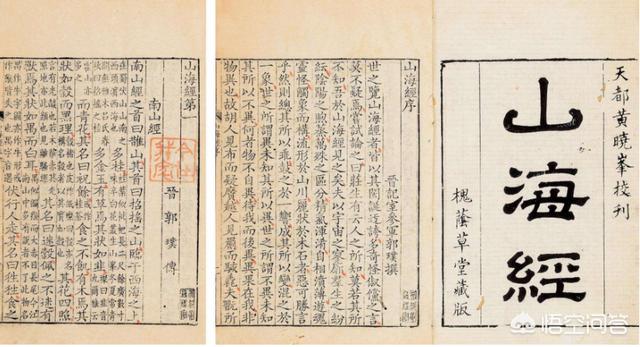 天都黃曉峯校刊
山海經
槐蔭草堂藏版
山海經序
晉記室參軍郭璞撰
世之覽山海經者皆以其閎誕迂誇多奇怪俶儻之言
莫不疑焉嘗試論之曰莊生有云人之所知莫若其所
不知吾於山海經見之矣夫以宇宙之寥廓羣生之紛
紜陰陽之煦蒸萬殊之區分精氣渾淆自相濆薄遊魂
靈怪觸象而構流形於山川麗狀於木石者惡可勝言
乎然則總其所以乖鼓之於一響成其所以變混之於
一象世之所謂異未知其所以異世之所謂不異未知
其所以不異何者物不自異待我而後異異果在我非
物異也故胡人見布而疑黂越人見罽而駭毳夫翫所
山海經第一
晉 郭璞傳
南山經
南山經之首曰䧿山其首曰招搖之山臨于西海之上
多桂
多金玉有草焉其狀如韭
而青花其名曰祝餘食之不飢有木焉其
狀如榖而黑理其花四照
其名曰迷榖佩之不迷有
獸焉其狀如禺而白耳
伏行人走其名曰狌狌食之
悟空问答